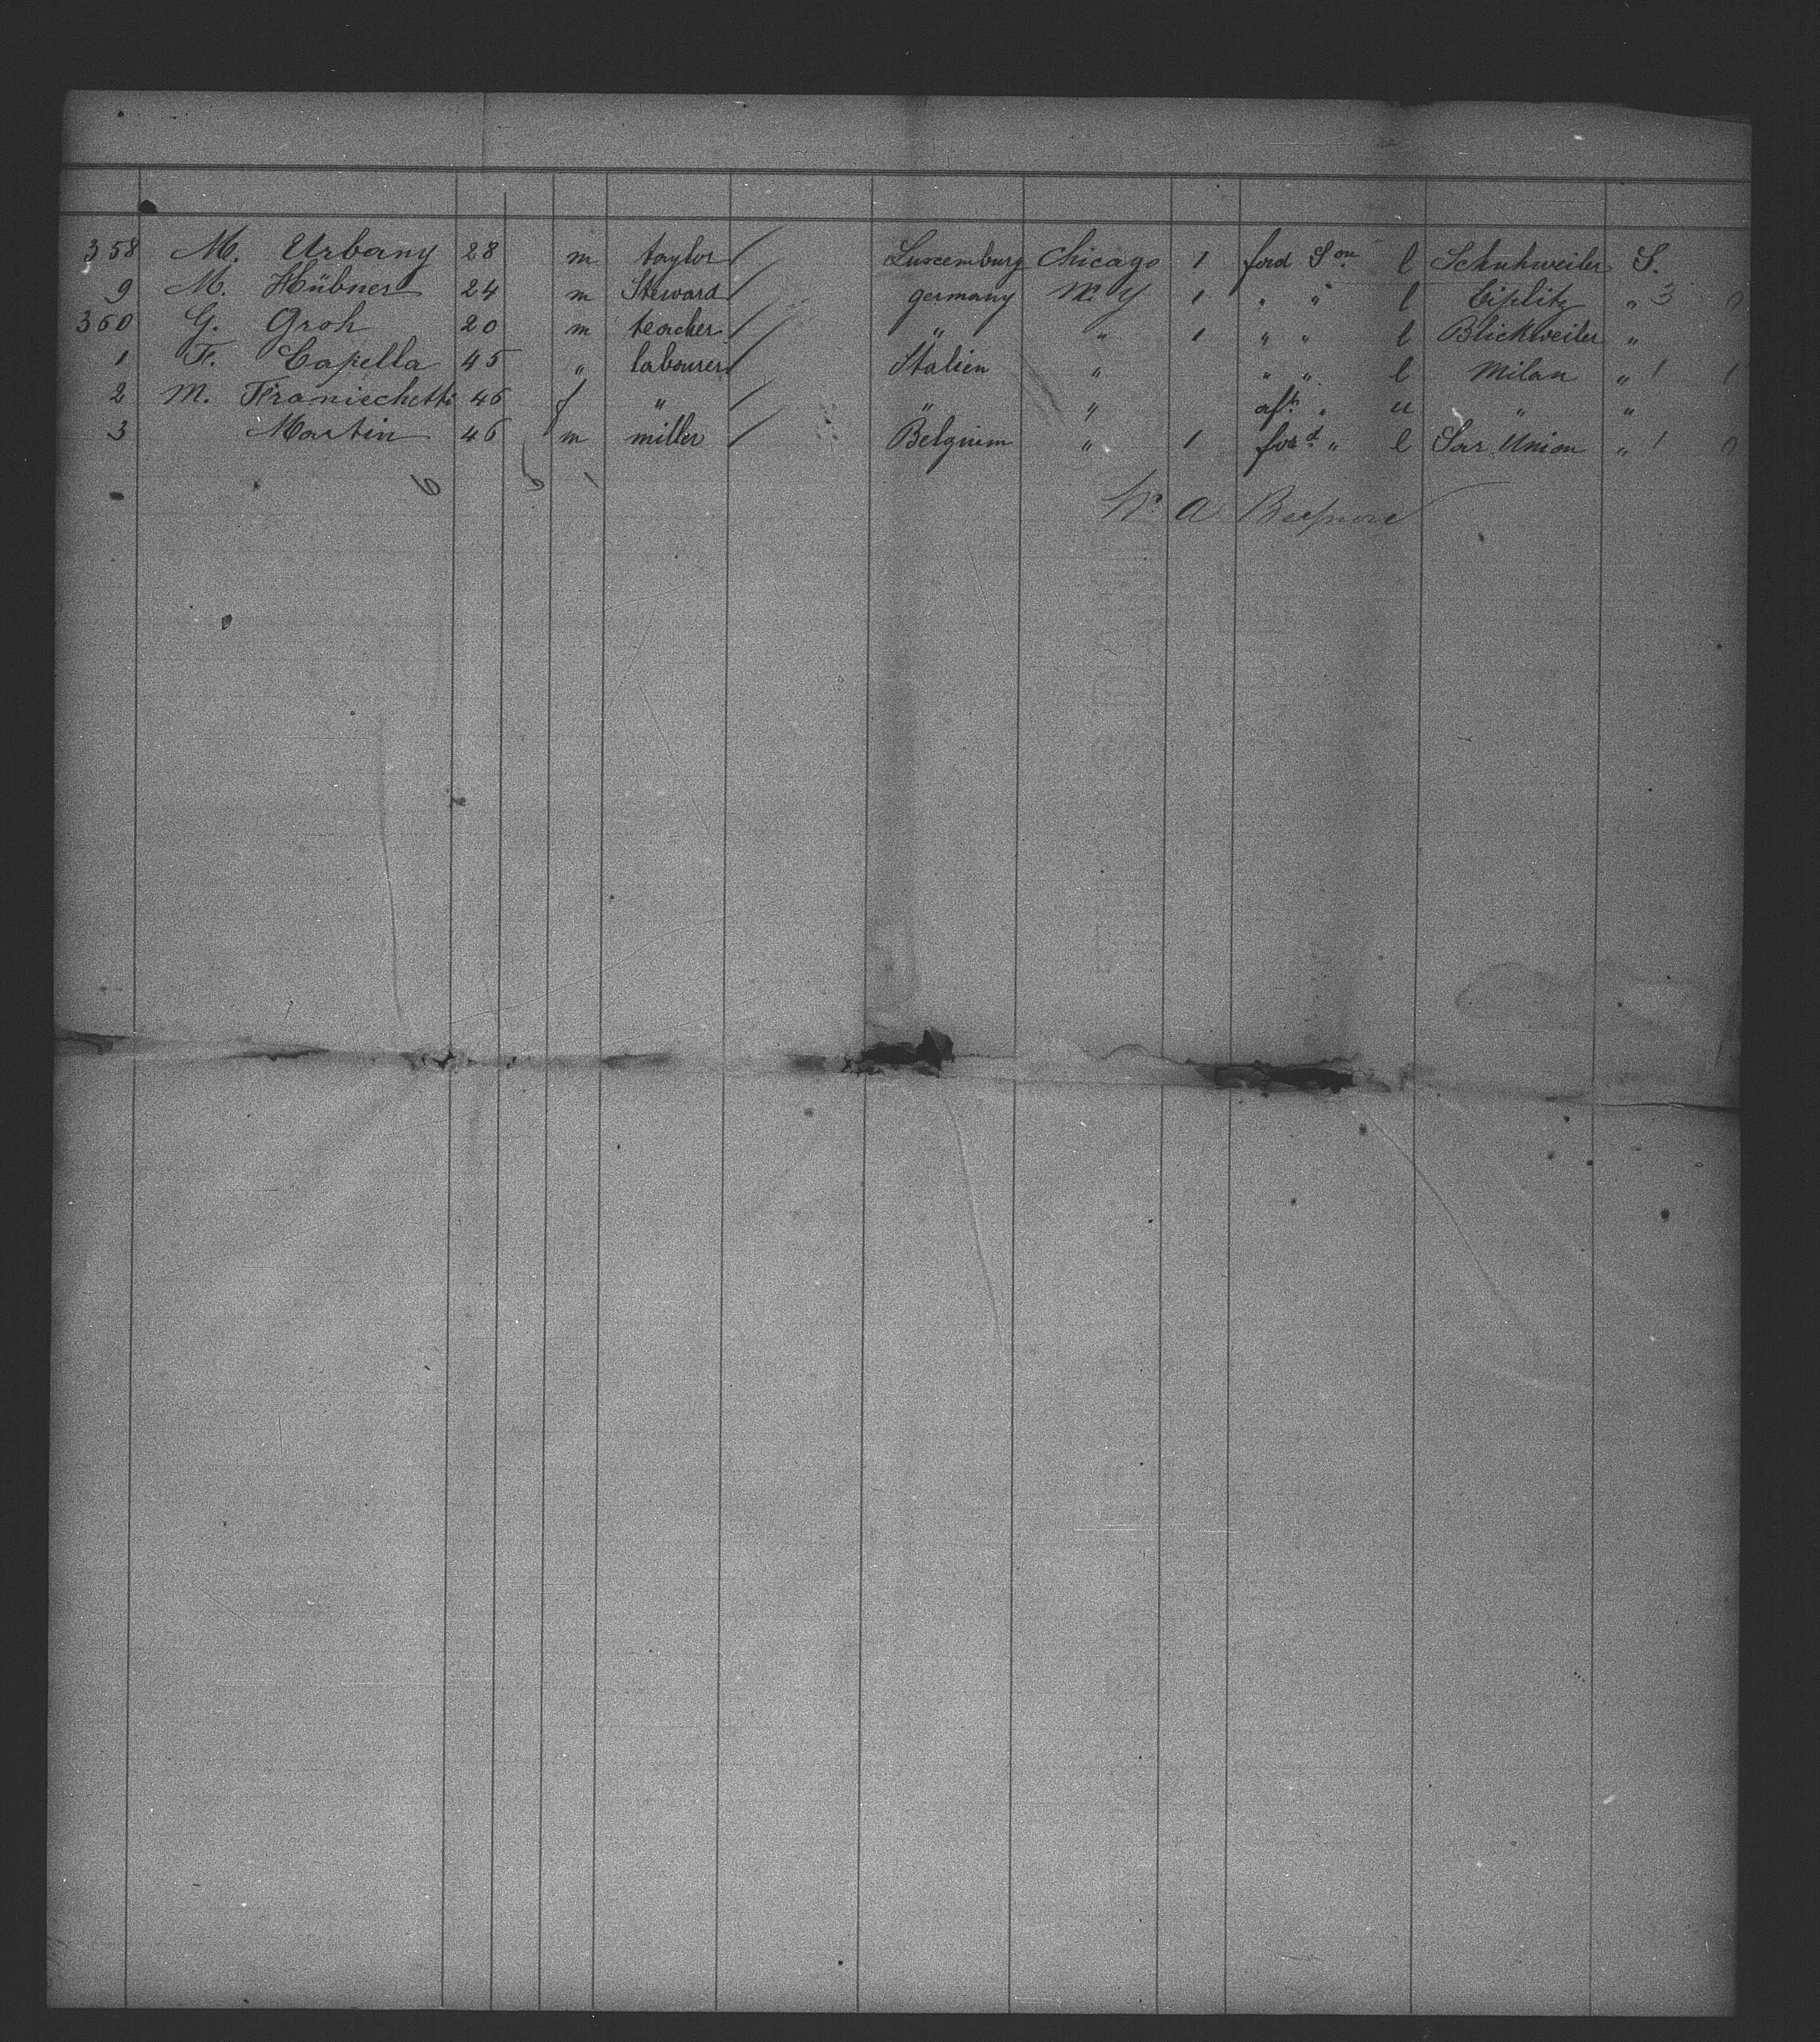 358 M. Urbany 28 m taylor / Luxemburg Chicago 1 ford S on l Schuhweiler S.
9 M. Hübner 24 m Steward / germany N. Y 1 " " l " 3 0
360 G. Groh 20 m teacher / " " 1 " " l Blickweiler "
1 F. Capella 45 " labourer / Italien " " " l Milan " 1 1
2 M. Franischetti 46 f " / " " aft. " u " "
3 Martin 46 m miller / Belgium " 1 ford " l Sar Union " 1 0
6 6 1
A